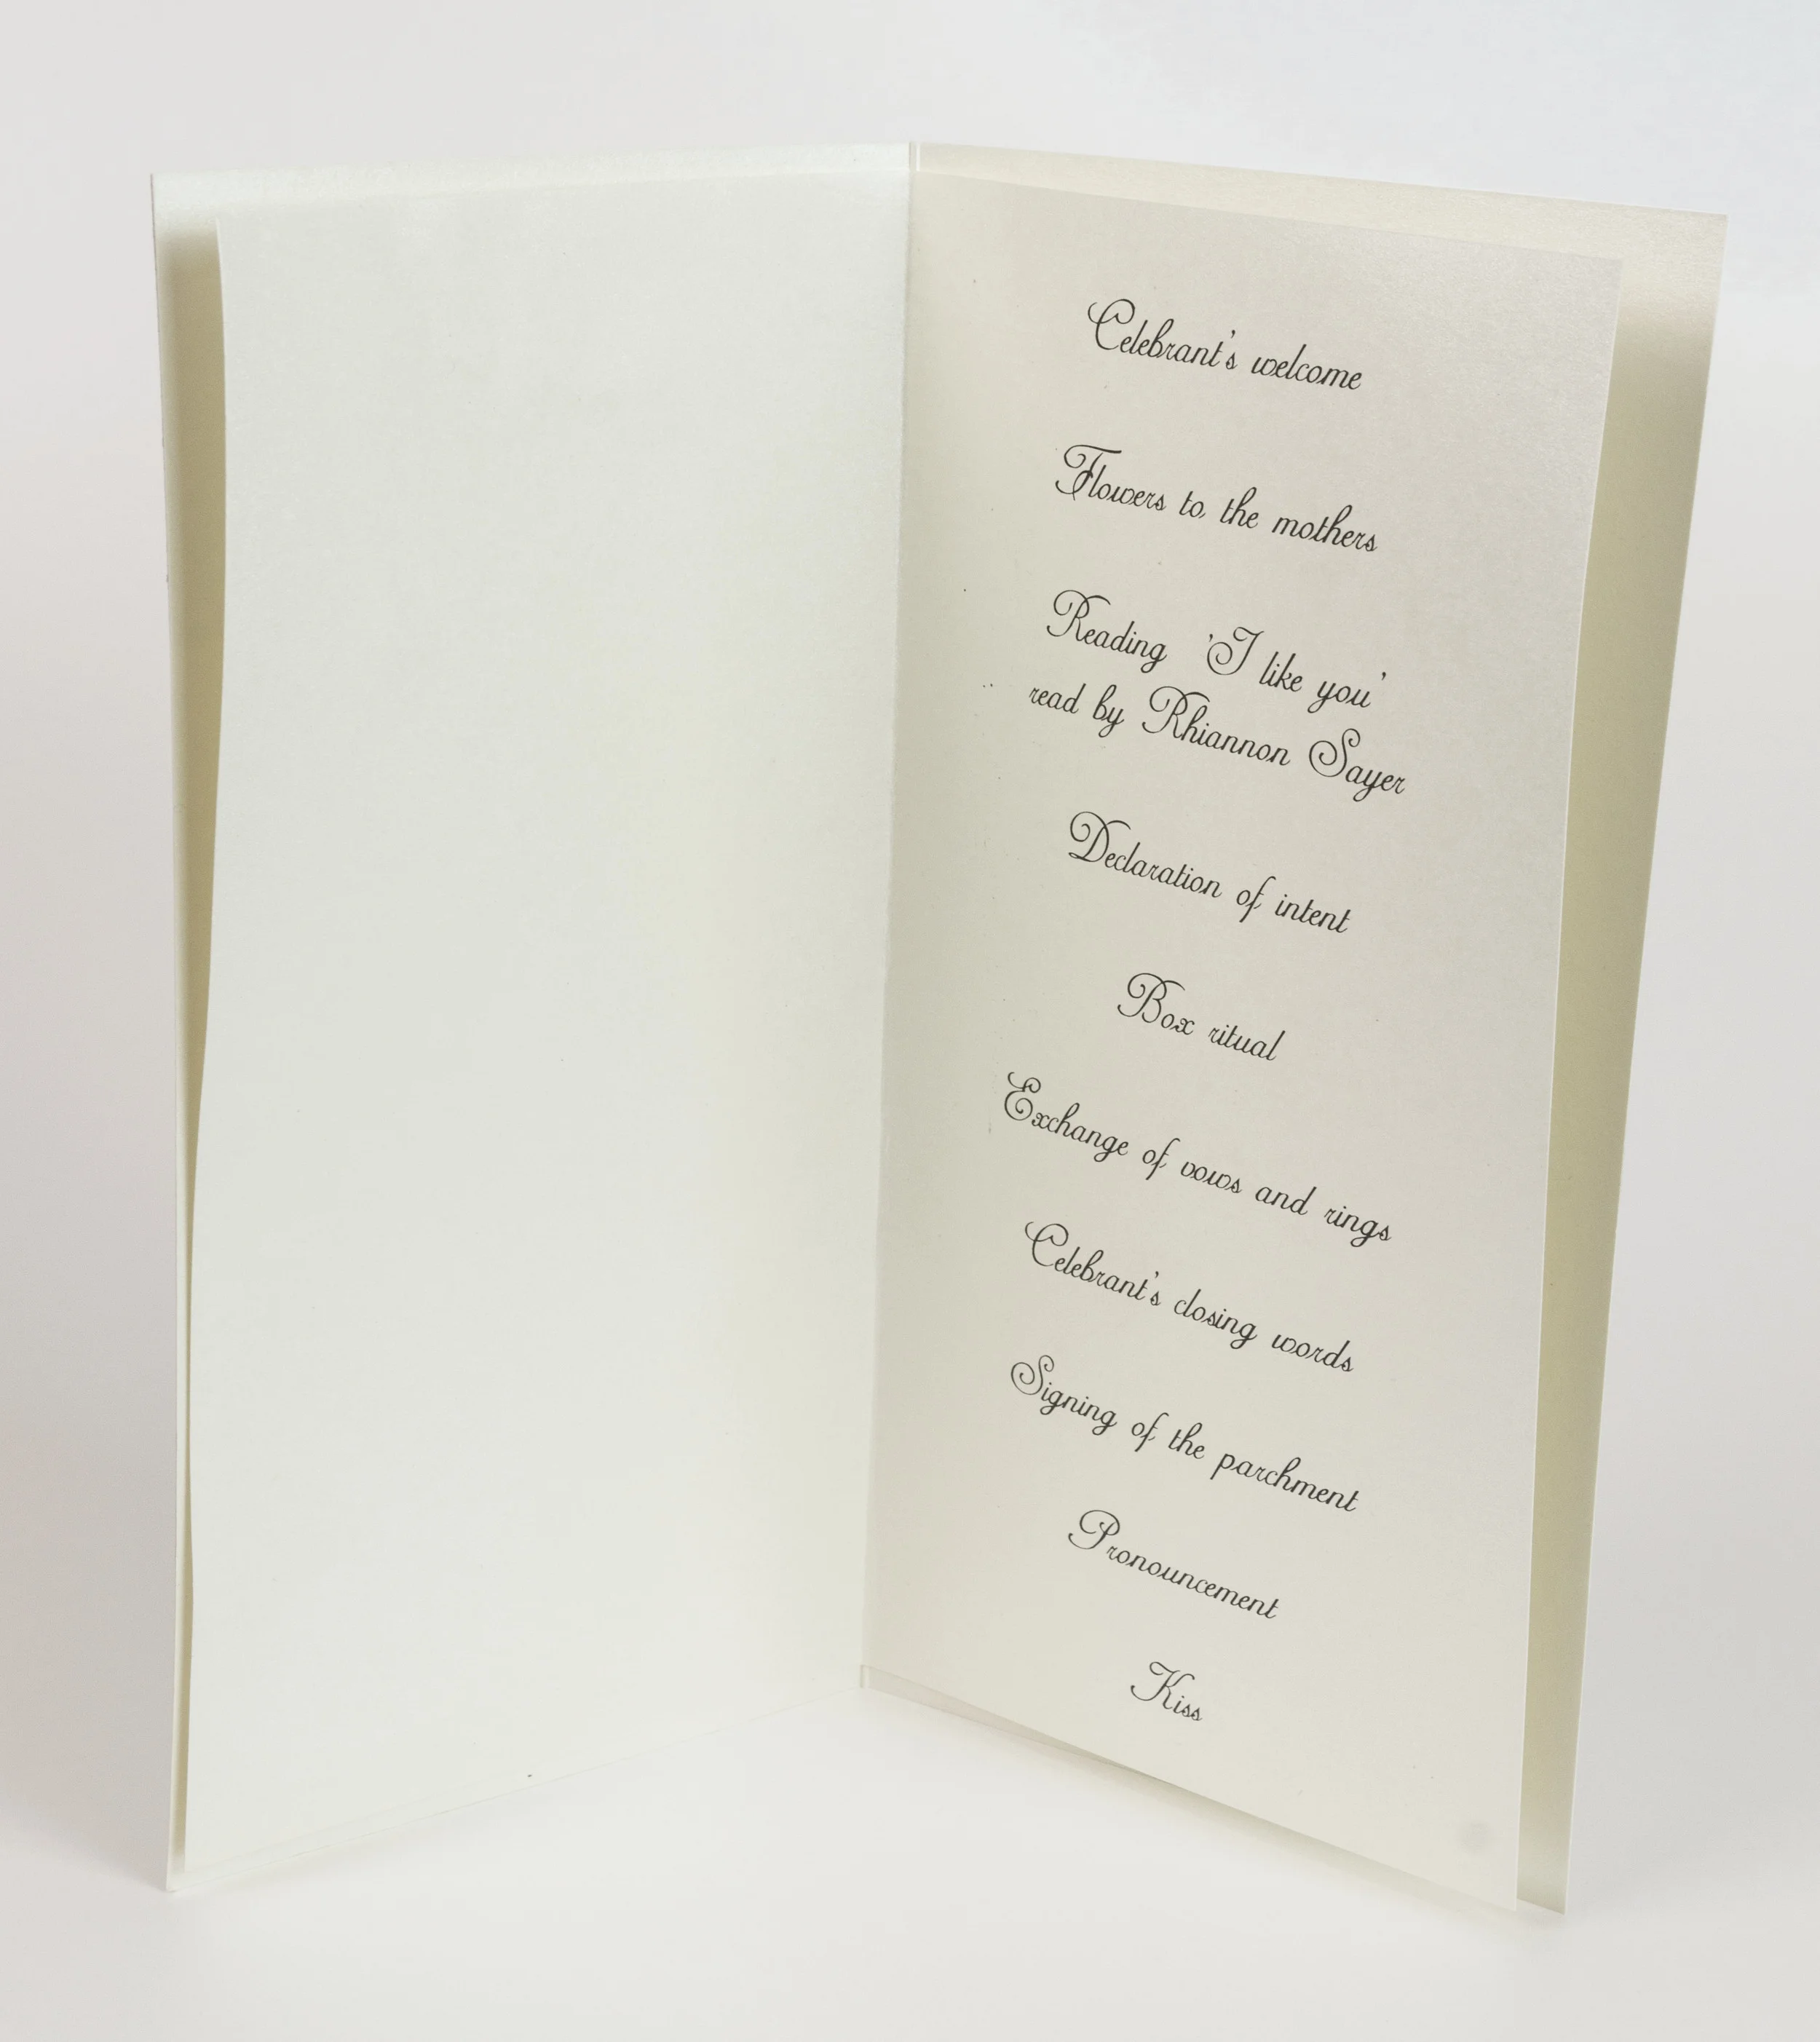 Celebrant's welcome
Flowers to the mothers
Reading 'I like you'
read by Rhiannon Sayer
Declaration of intent
Box ritual
Exchange of vows and rings
Celebrant's closing words
Signing of the parchment
Pronouncement
Kiss